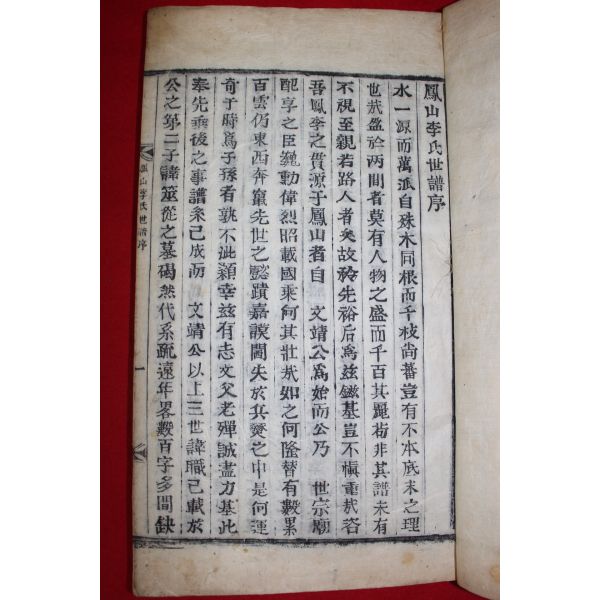 鳳山李氏世譜序
水一源而萬派自殊木同根而千枝尚蕃豈有不本底末之理
也哉盈於两間者莫有人物之盛而千百其麗苟非其譜未有
不視至親若路人者矣故於先裕后爲兹鎡基豈不愼重哉咨
吾鳳李之貫源于鳳山者自 文靖公爲始而公乃 世宗廟
配享之臣巍勳偉烈昭載國乘何其壯哉如之何隆替有數累
百雲仍東西奔竄先世之懿蹟嘉謨閪失於兵燹之中是何運
奇于時爲子孫者孰不泚顙幸玆有志文父老殫誠盡力基此
奉先垂後之事譜系已成而 文靖公以上三世諱職已載於
公之第二子諱筵從之墓碣然代系疏遠年畧數百字多間缺
鳳山李氏世譜序
一